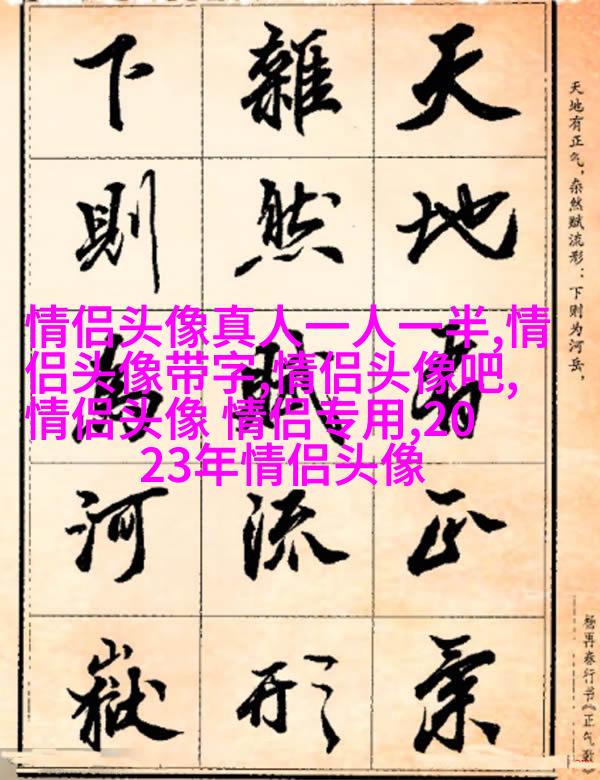 天地有正氣
雜然賦流形
下則為河嶽
天地有正气，杂然赋流形：下则为河岳，
杨再春行书《正气歌》
情侣头像真人一人一半,情
侣头像带字,情侣头像吧,
情侣头像 情侣专用,20
23年情侣头像